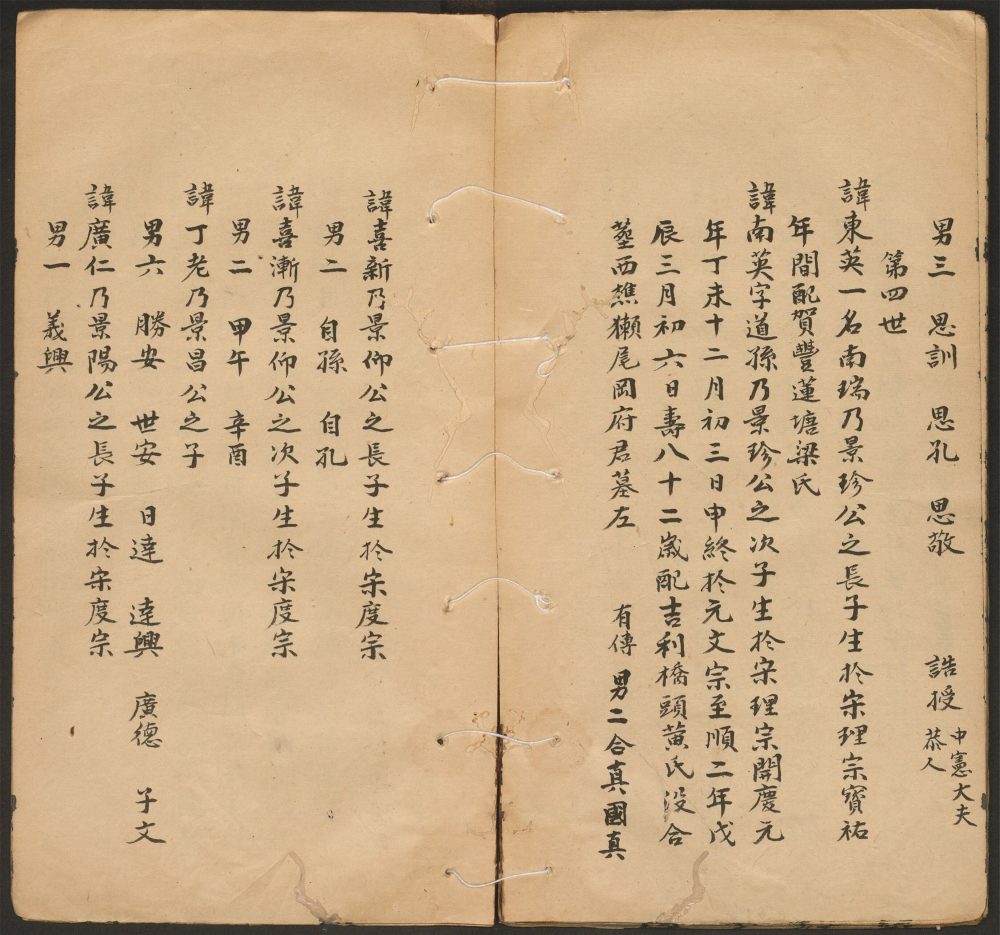 男三　思訓　思孔　思敬　誥授中憲大夫恭人
第四世
諱東英一名南瑞乃景珍公之長子生於宋理宗寶祐
年間配賀豐蓮塘梁氏
諱南英字道孫乃景珍公之次子生於宋理宗開慶元
年丁未十二月初三日申終於元文宗至順二年戊
辰三月初六日壽八十二歲配吉利橋頭黃氏沒合
塟西樵獺尾岡府君墓左　有傳　男二合真國真
諱喜新乃景仰公之長子生於宋度宗
男二　自孫　自孔
諱喜漸乃景仰公之次子生於宋度宗
男二　甲午　辛酉
諱丁老乃景昌公之子
男六　勝安　世安　日達　達興　廣德　子文
諱廣仁乃景陽公之長子生於宋度宗
男一　義興